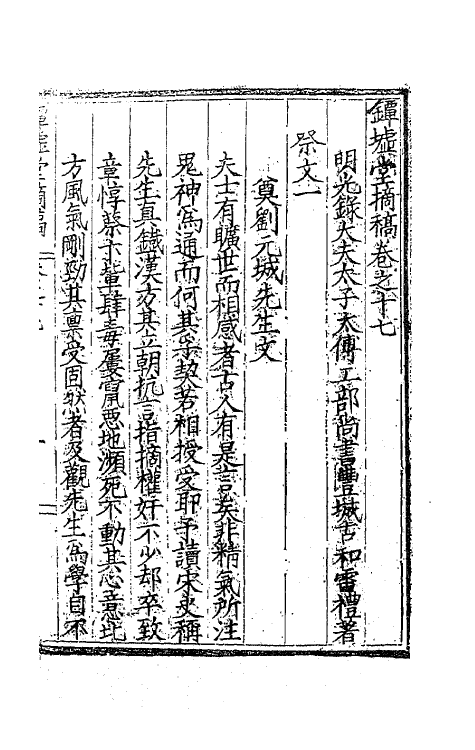 鐔墟堂摘稿卷之十七
明光錄大夫太子太傅工部尚書豐城古和雷禮著
祭文一
奠劉元城先生文
夫士有曠世而相感者古人有是言矣非精氣所注
鬼神爲通而何其宗契若相授受耶予讀宋史稱
先生真鐵漢方其立朝抗言指摘權奸不少却卒致
章惇蔡卞輩肆毒屢竄惡地瀕死不動其心意北
方風氣剛勁其稟受固然者及觀先生爲學自不